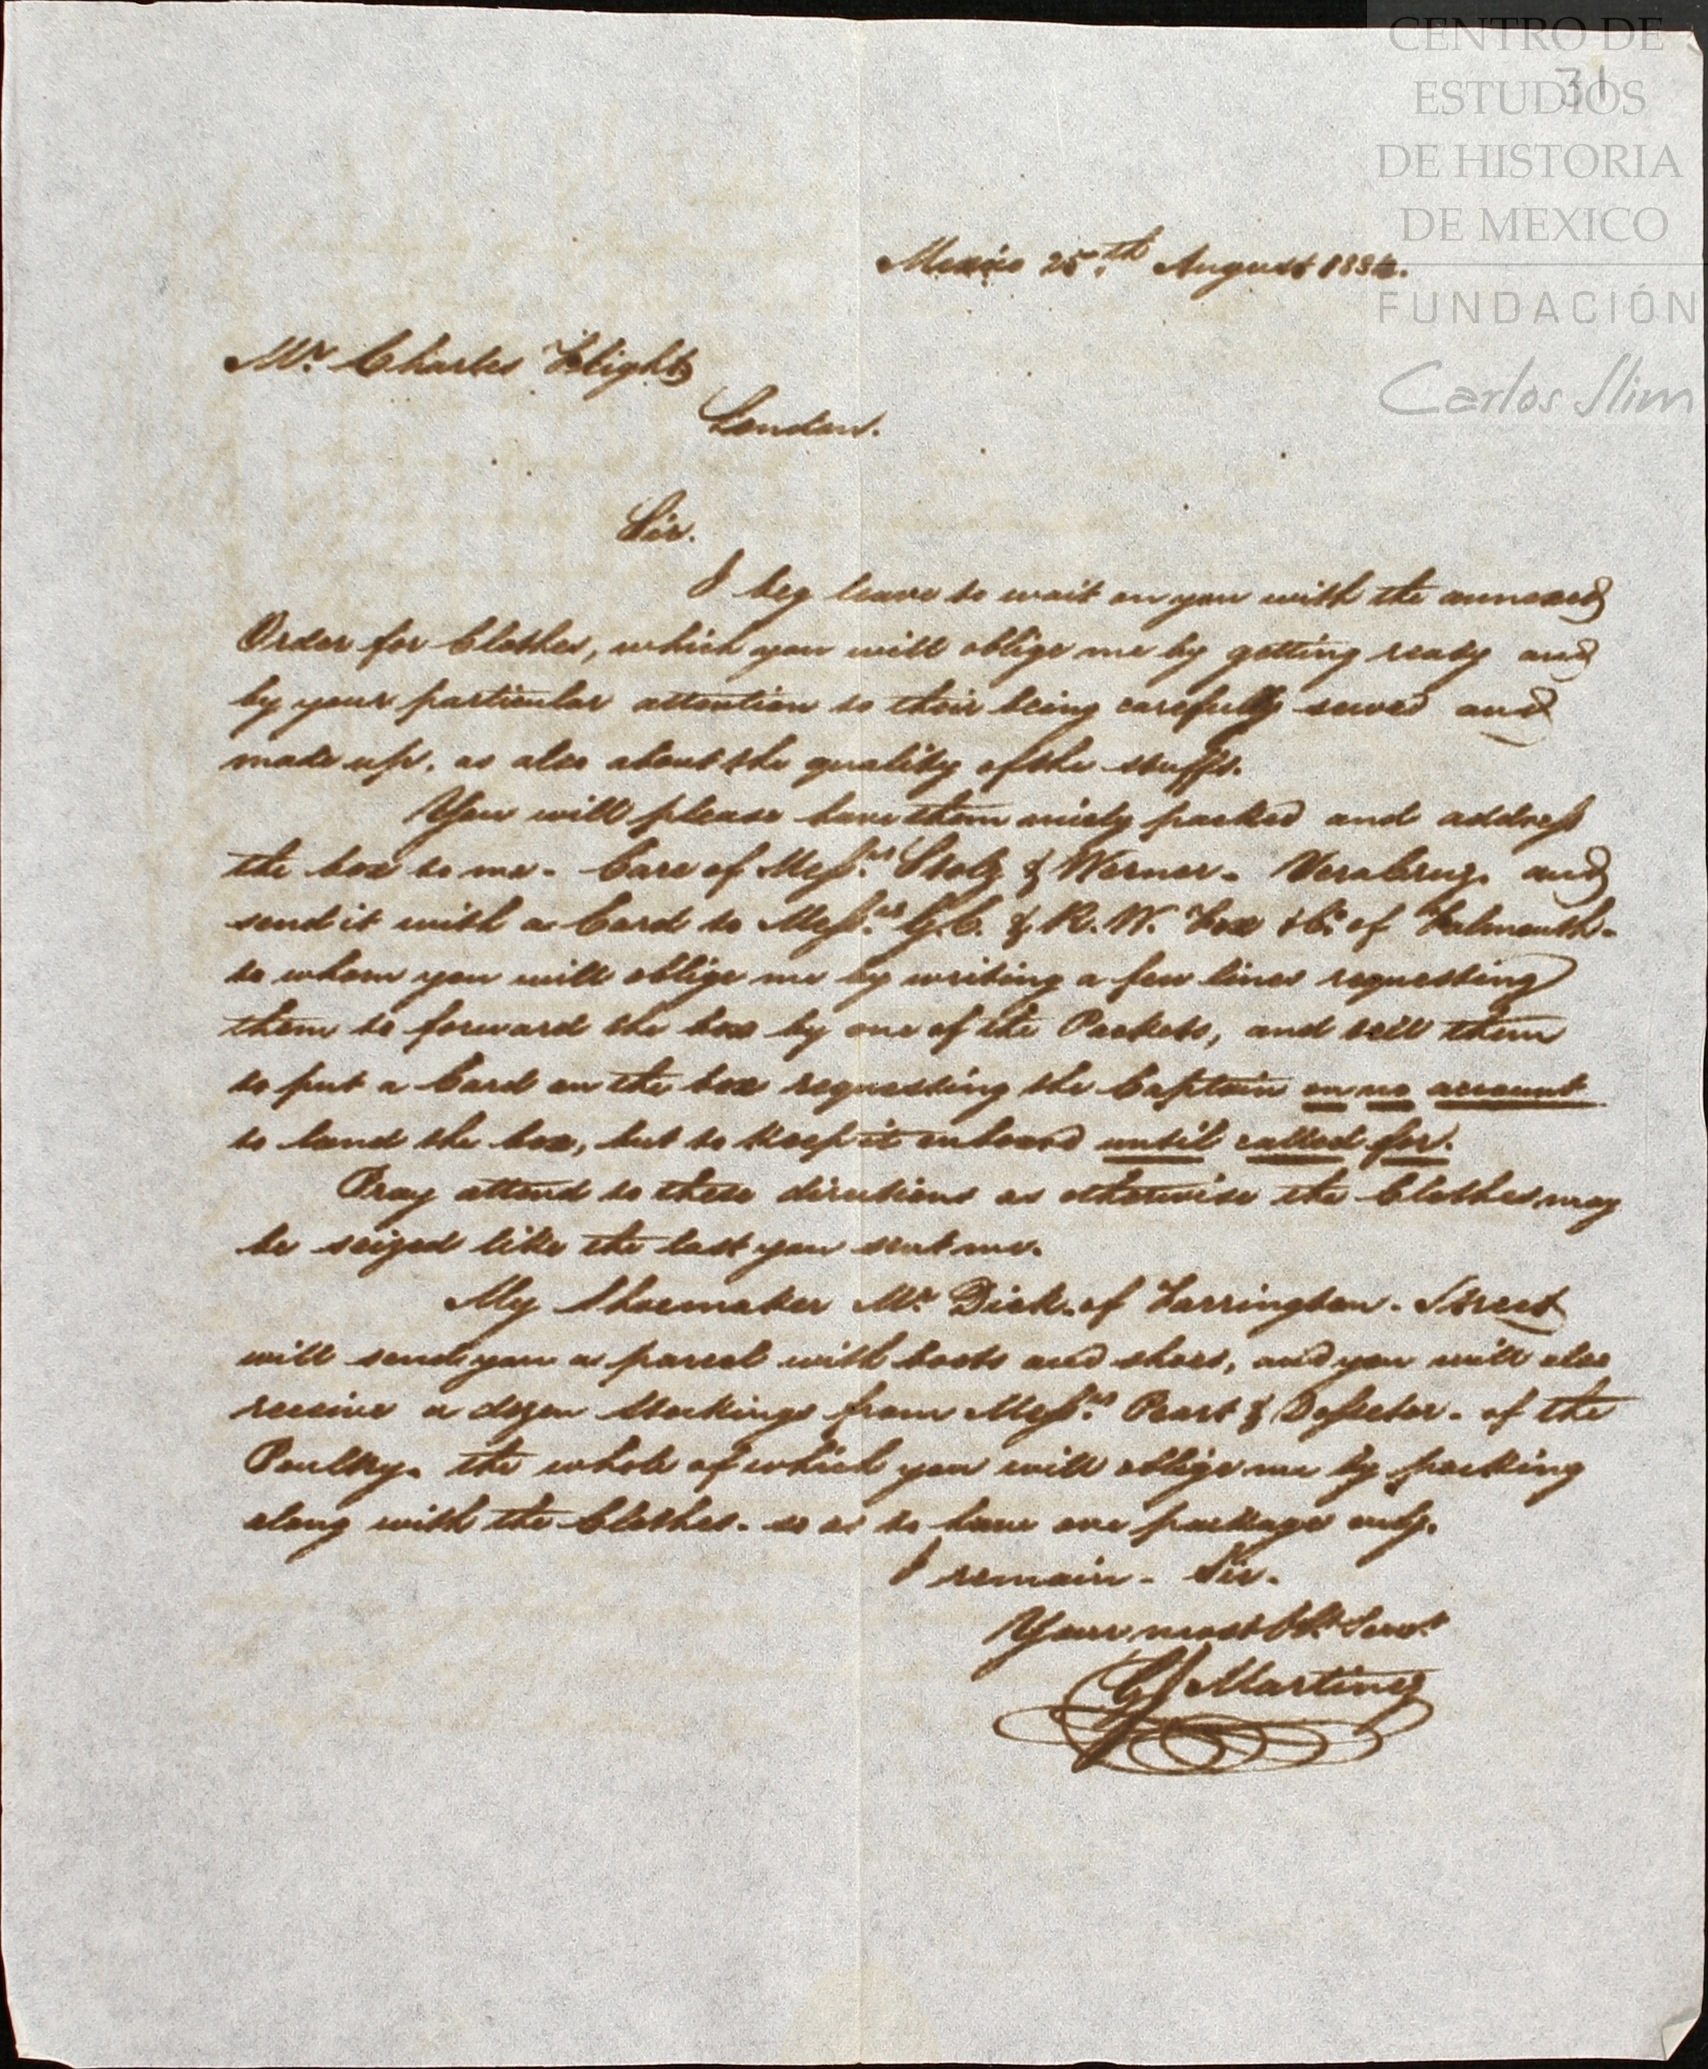 CENTRO DE
ESTUDIOS
DE HISTORIA
DE MEXICO
FUNDACIÓN
Carlos Slim
31
Mexico 25th August
Mr. Charles Flight
London.
Sir.
I beg leave to wait on you with the annexed
Order for Clothes, which you will oblige me by getting ready and
by your particular attention to their being carefully sewed and
made up. as also about the quality of the stuffs.
You will please have them nicely packed and address
the box to me. Care of Messrs. Stolz & Werner. Vera Cruz. and
send it with a Card to Messrs. G. C. & R. W. Fox & Co. of Falmouth.
to whom you will oblige me by writing a few lines requesting
them to forward the box by one of the Packets, and tell them
to put a Card on the box requesting the Captain on no account
to land the box, but to keep it onboard until called for.
Pray attend to these directions as otherwise the Clothes may
be seized like the last you sent me.
My Shoemaker Mr. Dick. of Farringdon. Street
will send you a parcel with boots and shoes, and you will also
receive a dozen Stockings from Messrs. & of the
Poultry. the whole of which you will oblige me by packing
along with the Clothes. so as to have one package only.
I remain. Sir.
Your most Obt. Servt.
Martinez